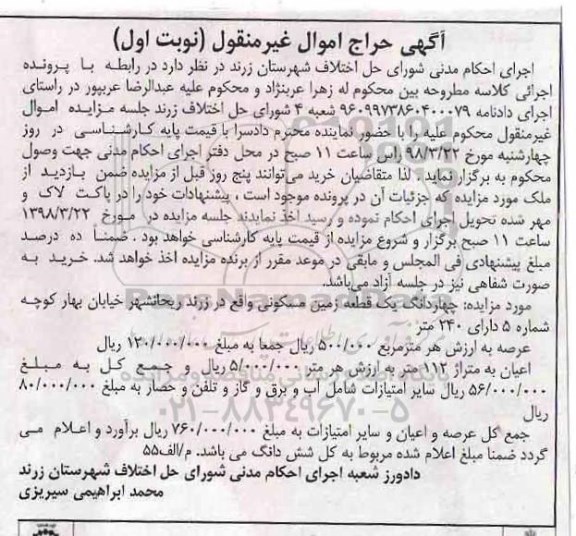 آگهی حراج اموال غیرمنقول (نوبت اول)
اجرای احکام مدنی شورای حل اختلاف شهرستان زرند در نظر دارد در رابطه با پرونده
اجرائی کلاسه مطروحه بین محکوم له زهرا عربنژاد و محکوم علیه عبدالرضا عربپور در راستای
اجرای دادنامه ۹۶۰۹۹۷۳۸۶۰۴۰۰۰۷۹ شعبه ۴ شورای حل اختلاف زرند جلسه مزایده اموال
غیرمنقول محکوم علیه را با حضور نماینده محترم دادسرا با قیمت پایه کارشناسی در روز
چهارشنبه مورخ ۹۸/۳/۲۲ راس ساعت ۱۱ صبح در محل دفتر اجرای احکام مدنی جهت وصول
محکوم به برگزار نماید. لذا متقاضیان خرید می‌توانند پنج روز قبل از مزایده ضمن بازدید از
ملک مورد مزایده که جزئیات آن در پرونده موجود است ، پیشنهادات خود را در پاکت لاک و
مهر شده تحویل اجرای احکام نموده و رسید اخذ نمایند جلسه مزایده در مورخ ۱۳۹۸/۳/۲۲
ساعت ۱۱ صبح برگزار و شروع مزایده از قیمت پایه کارشناسی خواهد بود . ضمناً ده درصد
مبلغ پیشنهادی فی المجلس و مابقی در موعد مقرر از برنده مزایده اخذ خواهد شد. خرید به
صورت شفاهی نیز در جلسه آزاد می‌باشد.
مورد مزایده: چهاردانگ یک قطعه زمین مسکونی واقع در زرند ریحانشهر خیابان بهار کوچه
شماره ۵ دارای ۲۴۰ متر
عرصه به ارزش هر مترمربع ۵۰۰/۰۰۰ ریال جمعا به مبلغ ۱۲۰/۰۰۰/۰۰۰ ریال
اعیان به متراژ ۱۱۲ متر به ارزش هر متر ۵/۰۰۰/۰۰۰ ریال و جمع کل به مبلغ
۵۶/۰۰۰/۰۰۰ ریال سایر امتیازات شامل آب و برق و گاز و تلفن و حصار به مبلغ ۸۰/۰۰۰/۰۰۰
ریال
جمع کل عرصه و اعیان و سایر امتیازات به مبلغ ۷۶۰/۰۰۰/۰۰۰ ریال برآورد و اعلام می
گردد ضمنا مبلغ اعلام شده مربوط به کل شش دانگ می باشد. م/الف۵۵
دادورز شعبه اجرای احکام مدنی شورای حل اختلاف شهرستان زرند
محمد ابراهیمی سیریزی
۰۲۱-۸۸۳۴۹۶۷۰-۵